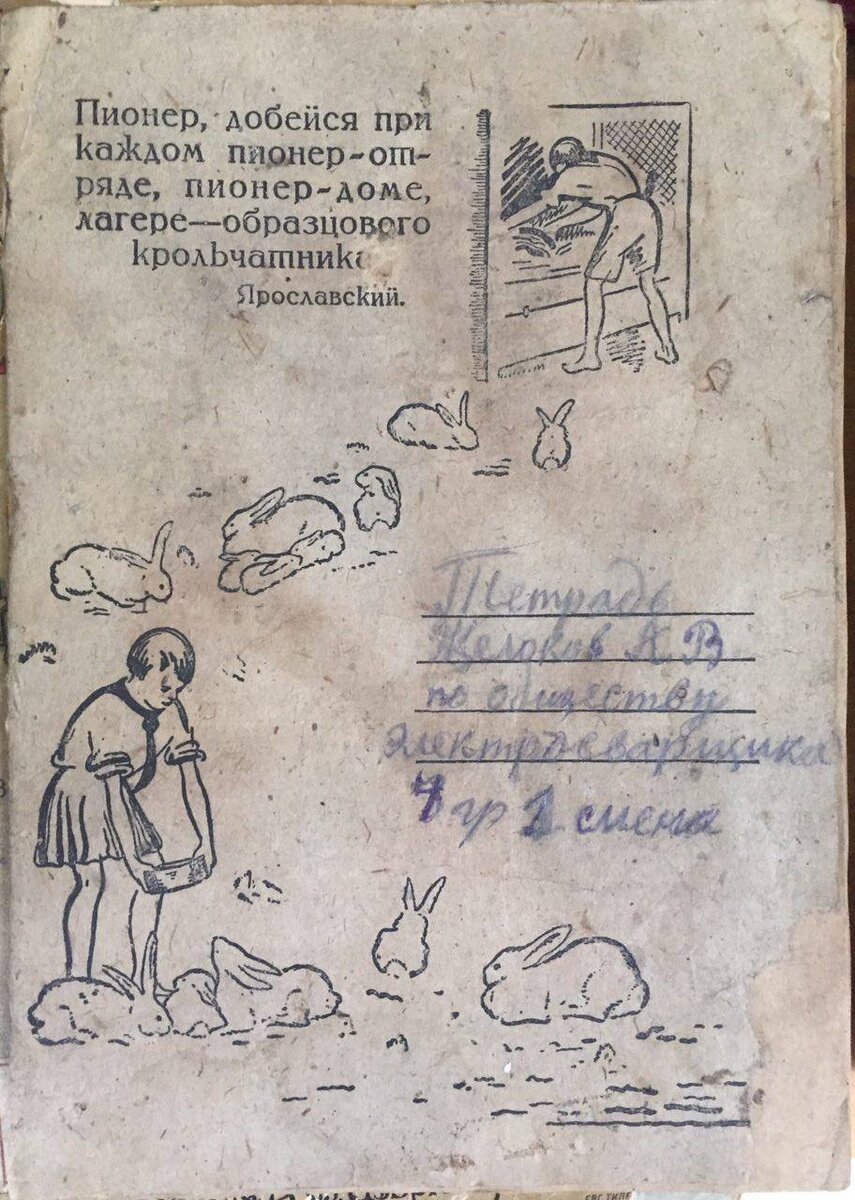 Пионер, добейся при
каждом пионер-от-
ряде, пионер-доме,
лагере—образцового
крольчатника
Ярославский.
Тетрадь
Щелоков А В
по обществу
электросварщика
7 гр 1 смена